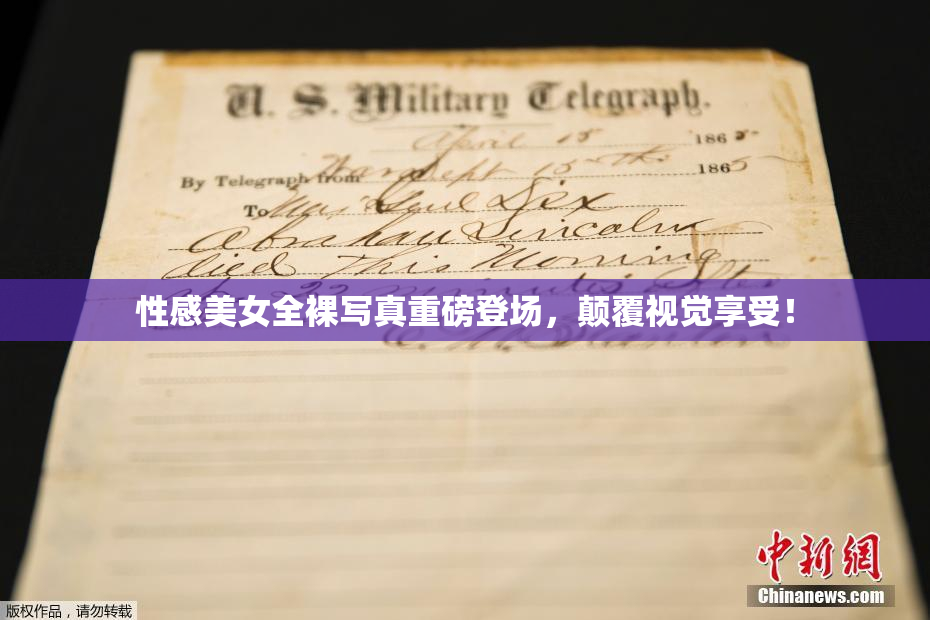 U. S. Military Telegraph.
April 15 1865
By Telegraph from War Dept 15th 1865
To Maj Genl Dix
Abraham Lincoln
died This Morning
at 22 minutes after
性感美女全裸写真重磅登场，颠覆视觉享受！
E. M. Stanton
中新网
Chinanews.com
版权作品，请勿转载